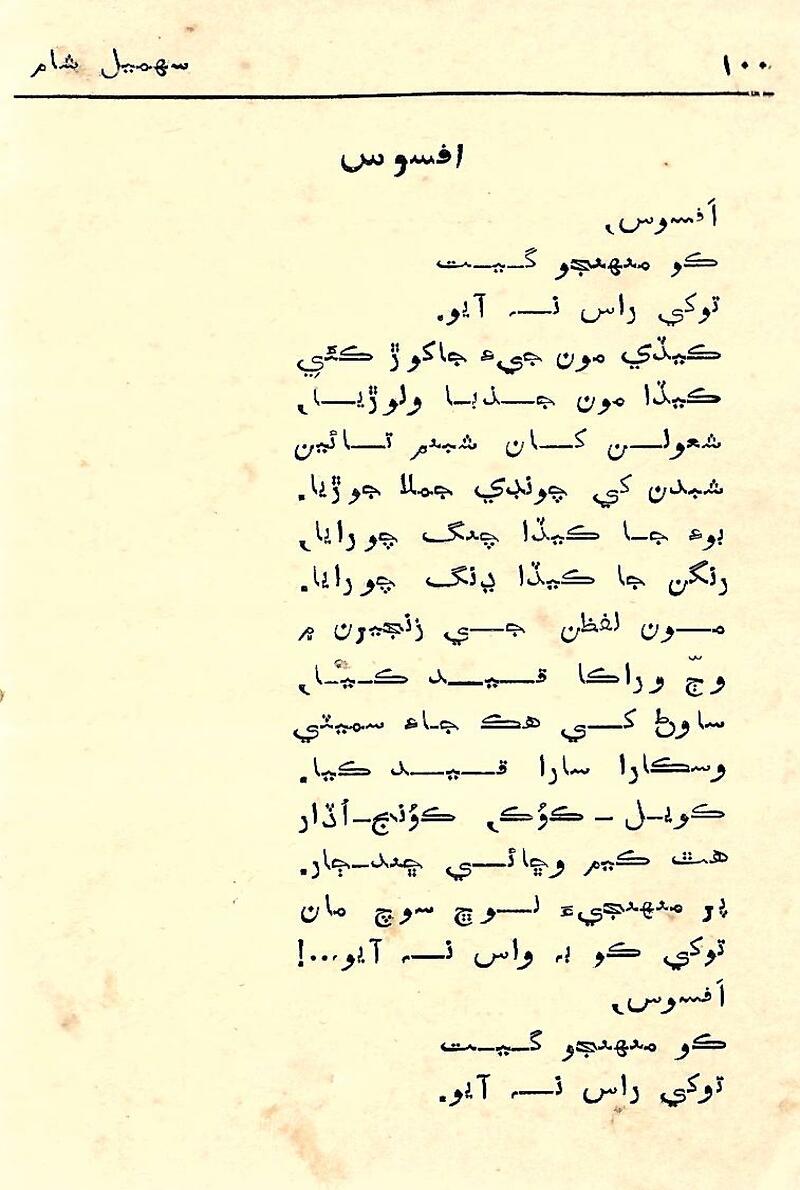 ١٠٠ سهميل شام
افسوس
اَفسوس،
ڪو منهنجو گيت
توکي راس نہ آيو.
ڪيڏي مون جيءَ جاکوڙ ڪئي
ڪيڏا مون جذبا ولوڙيا،
شعولن کان شبنم تائين
شبدن کي چونڊي جملا جوڙيا.
بوءِ جا ڪيڏا چنگ چورايا،
رنگن جا ڪيڏا ڍنگ چورايا.
مون لفظن جي زنجيرن ۾
وڄ وراڪا قيد ڪيا،
ساوڻ کي هڪ جاءِ سميٽي
وسڪارا سارا قيد ڪيا.
ڪويل - ڪوُڪ، ڪوُنج-اُڏار
هٿ ڪيم وڇائي ڇند-ڄار.
پر منهنجيءَ لوچ سوچ مان
توکي ڪو بہ واس نہ آيو...!
اَفسوس،
ڪو منهنجو گيت
توکي راس نہ آيو.